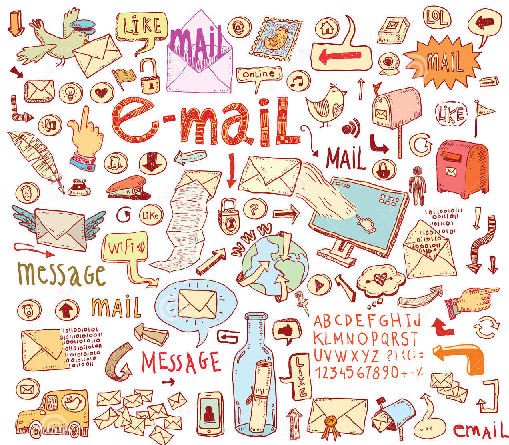 LiKE
MAIL
LOL
MAIL
online
e-mail
LiKE
MAIL
Like
WiFi
WWW
message
MAIL
MESSAGE
ABCDEFGHIJ
KLMNOPQRST
UVWXYZ ?!(:=
1234567890+-%
EMAIL